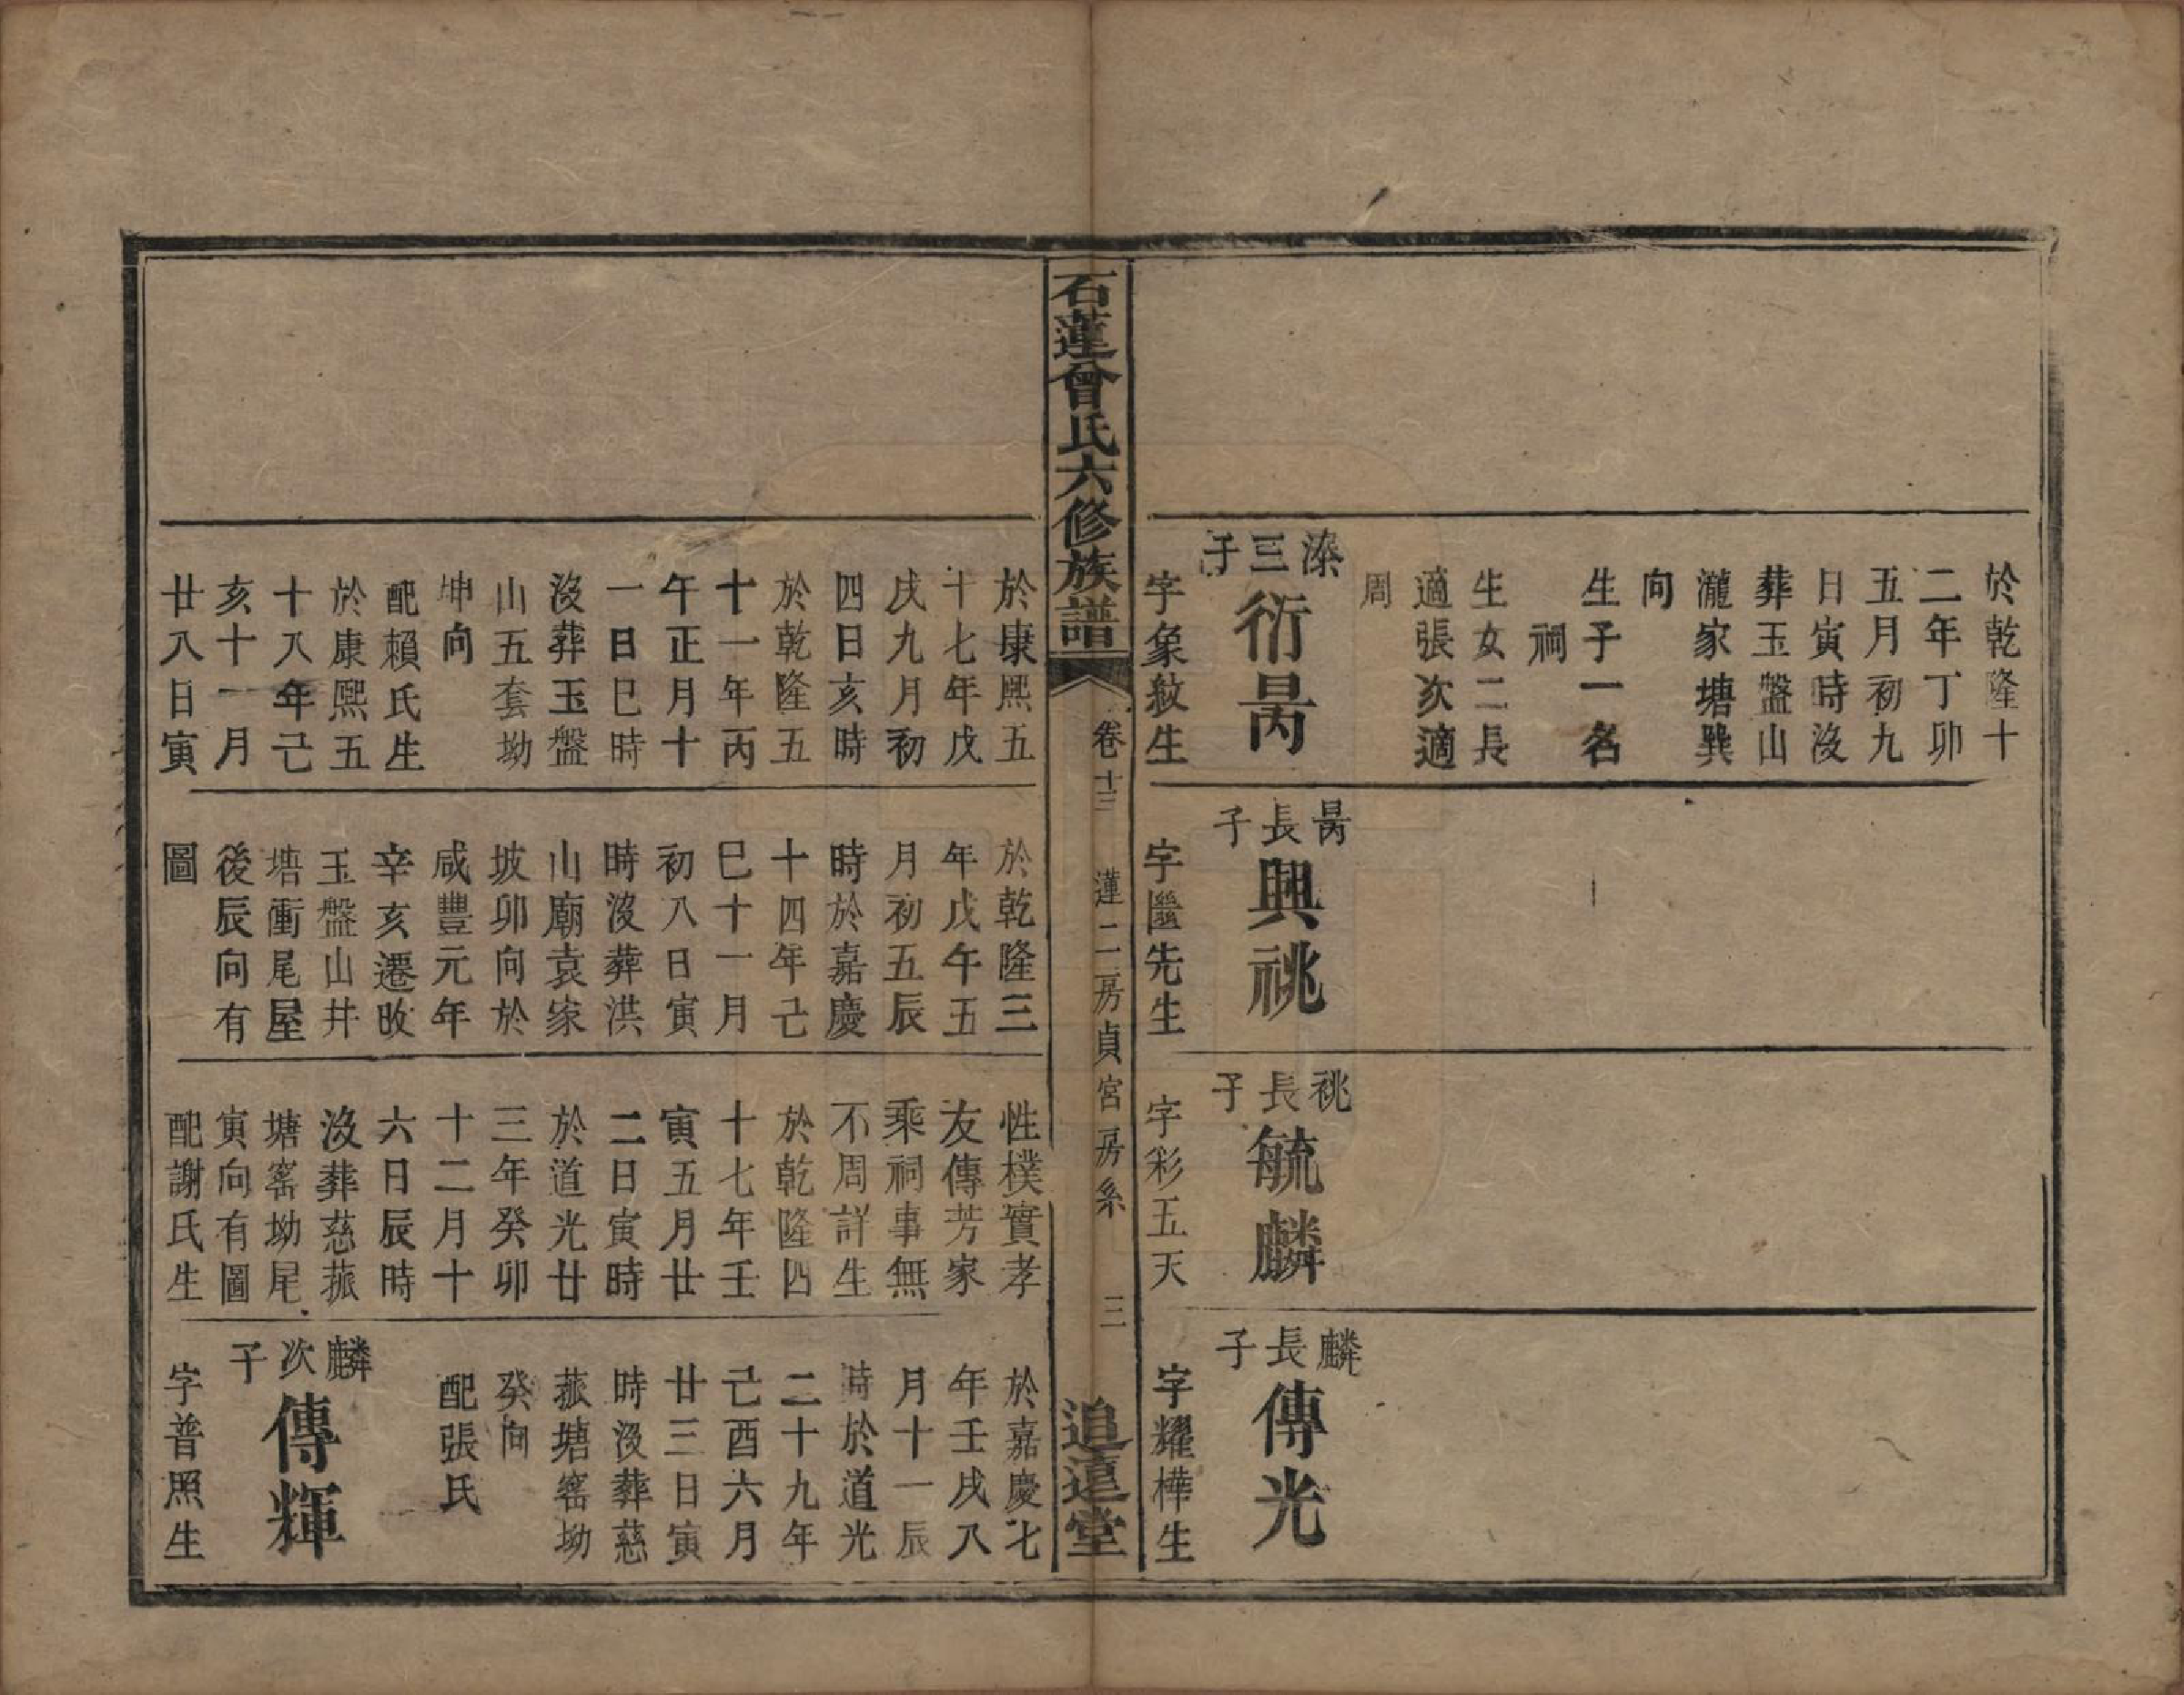 於乾隆十
二年丁卯
五月初九
日寅時沒
葬玉盤山
瀧家塘巽
向
生子一名
祠
生女二長
適張次適
周
溙三子
衍昺
字象敘生
昺長子
興祧
字繼先生
祧長子
毓麟
字彩五天
麟長子
傳光
字耀樺生
石蓮曾氏六修族譜
卷十三
蓮二房貞宮房系
三
追遠堂
於康熙五
十七年戊
戌九月初
四日亥時
於乾隆五
十一年丙
午正月十
一日巳時
沒葬玉盤
山五套坳
坤向
配賴氏生
於康熙五
十八年己
亥十一月
廿八日寅
於乾隆三
年戊午五
月初五辰
時於嘉慶
十四年己
巳十一月
初八日寅
時沒葬洪
山廟袁家
坡卯向於
咸豐元年
辛亥遷攺
玉盤山井
塘衝尾屋
後辰向有
圖
性樸實孝
友傳芳家
乘祠事無
不周詳生
於乾隆四
十七年壬
寅五月廿
二日寅時
於道光廿
三年癸卯
十二月十
六日辰時
沒葬慈菰
塘窰坳尾
寅向有圖
配謝氏生
於嘉慶七
年壬戌八
月十一辰
時於道光
二十九年
己酉六月
廿三日寅
時沒葬慈
菰塘窰坳
癸向
配張氏
麟次子
傳輝
字普照生